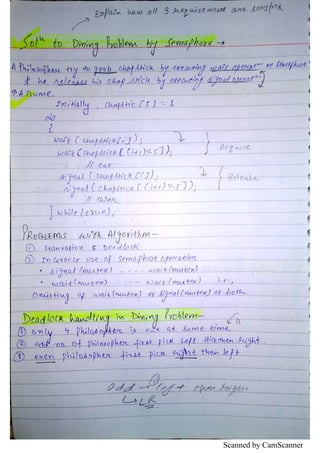 Explain how all 3 Requirement are satisfied.
Soln to Dining Problem by Semaphore →
A Philosopher try to grab chopstick by executing wait operatn on semaphore
& he releases his chopstick by executing signal operatn
→ Assume,
Initially, chopstic [5] = 1
do
{
wait (chopstick[i]);
wait (chopstick[(i+1)%5]);
Acquire
// eat
signal (chopstick[i]);
signal (chopstick[(i+1)%5]);
Release
// think
} while (true);
PROBLEMS with Algorithm—
① Starvation & Deadlock
② In correct use of semaphore operation
• signal (mutex) ---- wait (mutex)
• wait (mutex) ---- wait (mutex) i.e.,
Omitting of wait (mutex) or signal (mutex) or both
Deadlock handling in Dining Problem—
① only 4 philosopher is use at same time
② odd no. of philosopher first pick left then right
③ even philosopher first pick right then left
Odd → left
↳ LR
Scanned by CamScanner